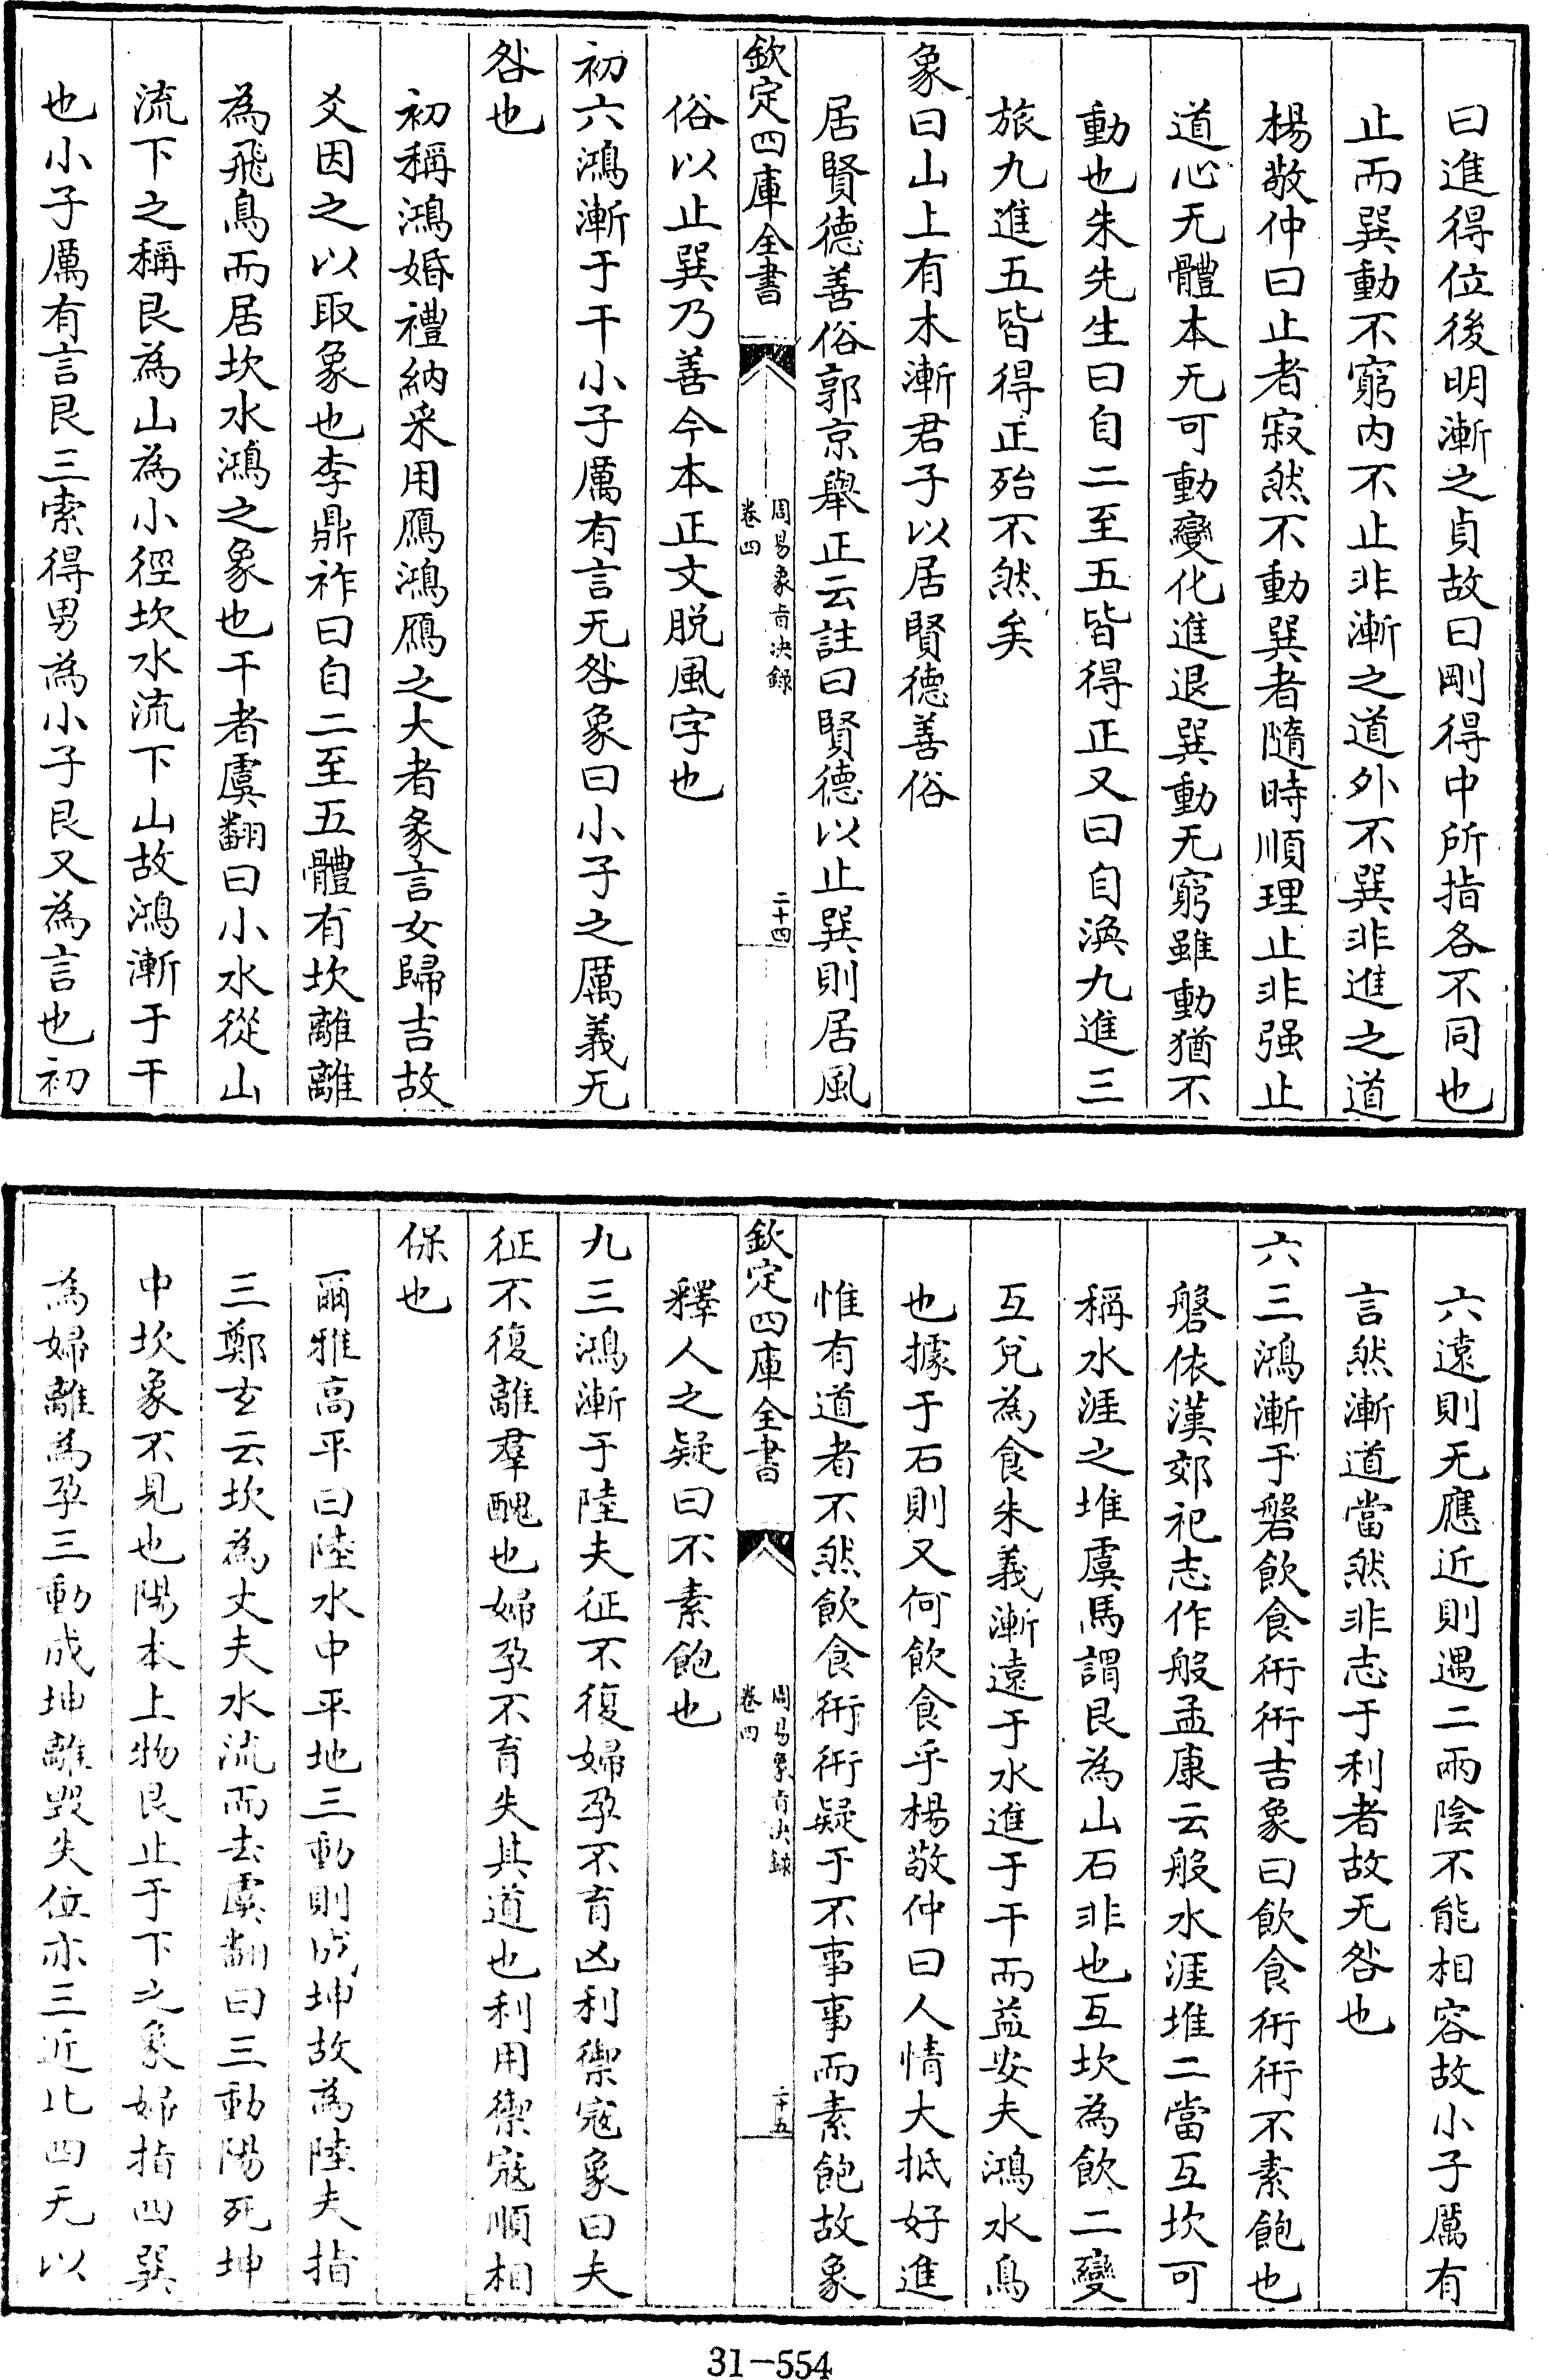 曰進得位後明漸之貞故曰剛得中所指各不同也
止而巽動不窮内不止非漸之道外不巽非進之道
楊敬仲曰止者寂然不動巽者隨時順理止非强止
道心无體本无可動變化進退巽動无窮雖動猶不
動也朱先生曰自二至五皆得正又曰自渙九進三
旅九進五皆得正殆不然矣
象曰山上有木漸君子以居賢德善俗
居賢德善俗郭京舉正云註曰賢德以止巽則居風
欽定四庫全書
周易象旨决錄
卷四
二十四
俗以止巽乃善今本正文脱風字也
初六鴻漸于干小子厲有言无咎象曰小子之厲義无
咎也
初稱鴻婚禮納采用鴈鴻鴈之大者彖言女歸吉故
爻因之以取象也李鼎祚曰自二至五體有坎離離
為飛鳥而居坎水鴻之象也干者虞翻曰小水從山
流下之稱艮為山為小徑坎水流下山故鴻漸于干
也小子厲有言艮三索得男為小子艮又為言也初
六遠則无應近則遇二兩陰不能相容故小子厲有
言然漸道當然非志于利者故无咎也
六二鴻漸于磐飲食衎衎吉象曰飲食衎衎不素飽也
磐依漢郊祀志作般孟康云般水涯堆二當互坎可
稱水涯之堆虞馬謂艮為山石非也互坎為飲二變
互兌為食朱義漸遠于水進于干而益安夫鴻水鳥
也據于石則又何飲食乎楊敬仲曰人情大抵好進
惟有道者不然飲食衎衎疑于不事事而素飽故象
欽定四庫全書
周易象旨决錄
卷四
二十五
釋人之疑曰不素飽也
九三鴻漸于陸夫征不復婦孕不育凶利禦寇象曰夫
征不復離羣醜也婦孕不育失其道也利用禦寇順相
保也
爾雅高平曰陸水中平地三動則成坤故為陸夫指
三鄭玄云坎為丈夫水流而去虞翻曰三動陽死坤
中坎象不見也陽本上物艮止于下之象婦指四巽
為婦離為孕三動成坤離毁失位亦三近比四无以
31-554